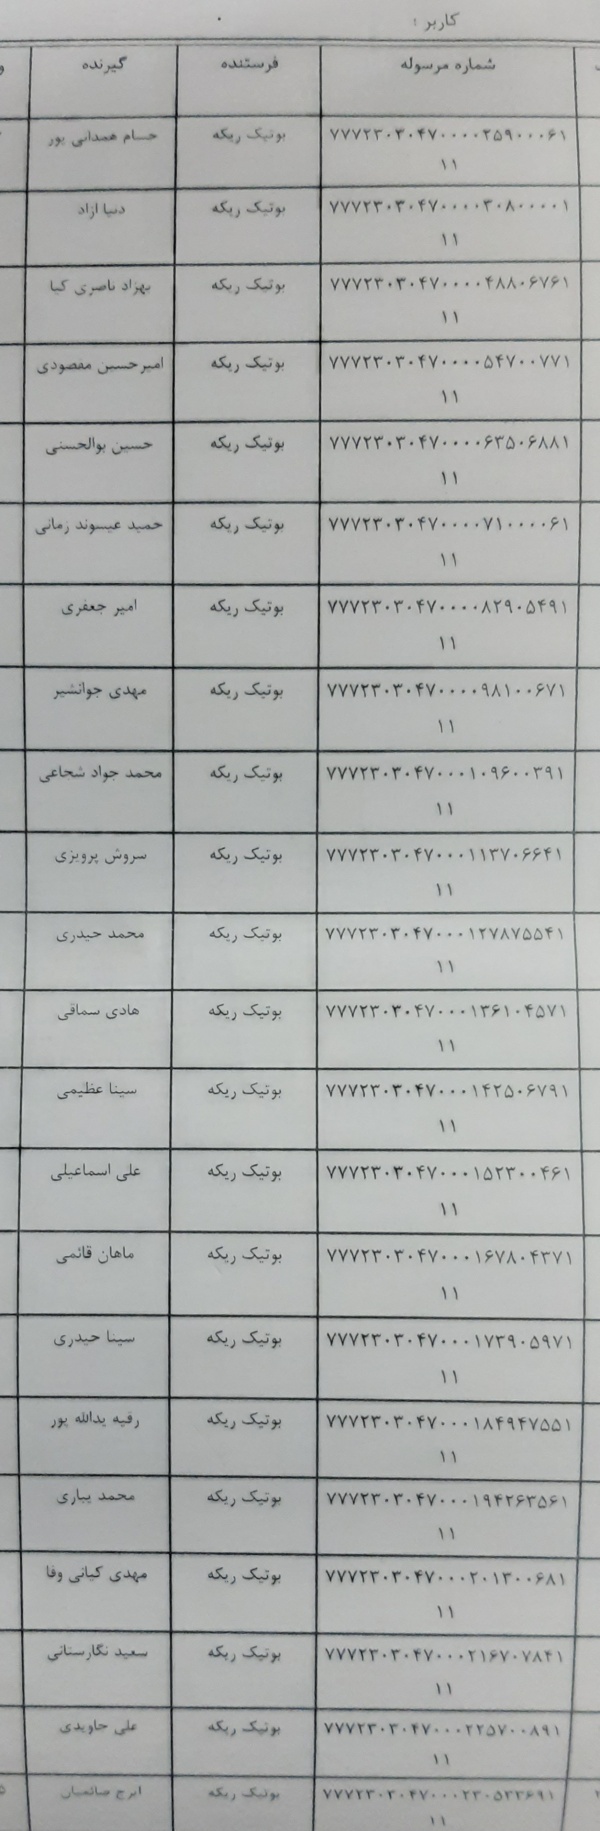 کاربر :
شماره مرسوله فرستنده گیرنده
۷۷۷۲۳۰۳۰۴۷۰۰۰۰۲۵۹۰۰۰۶۱ بوتیک ریکه حسام همدانی پور
۱۱
۷۷۷۲۳۰۳۰۴۷۰۰۰۰۳۰۸۰۰۰۰۱ بوتیک ریکه دنیا ازاد
۱۱
۷۷۷۲۳۰۳۰۴۷۰۰۰۰۴۸۸۰۶۷۶۱ بوتیک ریکه بهزاد ناصری کیا
۱۱
۷۷۷۲۳۰۳۰۴۷۰۰۰۰۵۴۷۰۰۷۷۱ بوتیک ریکه امیرحسین مقصودی
۱۱
۷۷۷۲۳۰۳۰۴۷۰۰۰۰۶۳۵۰۶۸۸۱ بوتیک ریکه حسین بوالحسنی
۱۱
۷۷۷۲۳۰۳۰۴۷۰۰۰۰۷۱۰۰۰۰۶۱ بوتیک ریکه حمید عیسوند زمانی
۱۱
۷۷۷۲۳۰۳۰۴۷۰۰۰۰۸۲۹۰۵۴۹۱ بوتیک ریکه امیر جعفری
۱۱
۷۷۷۲۳۰۳۰۴۷۰۰۰۰۹۸۱۰۰۶۷۱ بوتیک ریکه مهدی جوانشیر
۱۱
۷۷۷۲۳۰۳۰۴۷۰۰۰۱۰۹۶۰۰۳۹۱ بوتیک ریکه محمد جواد شجاعی
۱۱
۷۷۷۲۳۰۳۰۴۷۰۰۰۱۱۳۷۰۶۶۴۱ بوتیک ریکه سروش پرویزی
۱۱
۷۷۷۲۳۰۳۰۴۷۰۰۰۱۲۷۸۷۵۵۴۱ بوتیک ریکه محمد حیدری
۱۱
۷۷۷۲۳۰۳۰۴۷۰۰۰۱۳۶۱۰۴۵۷۱ بوتیک ریکه هادی سماقی
۱۱
۷۷۷۲۳۰۳۰۴۷۰۰۰۱۴۲۵۰۶۷۹۱ بوتیک ریکه سینا عظیمی
۱۱
۷۷۷۲۳۰۳۰۴۷۰۰۰۱۵۲۳۰۰۴۶۱ بوتیک ریکه علی اسماعیلی
۱۱
۷۷۷۲۳۰۳۰۴۷۰۰۰۱۶۷۸۰۴۳۷۱ بوتیک ریکه ماهان قائمی
۱۱
۷۷۷۲۳۰۳۰۴۷۰۰۰۱۷۳۹۰۵۹۷۱ بوتیک ریکه سینا حیدری
۱۱
۷۷۷۲۳۰۳۰۴۷۰۰۰۱۸۴۹۴۷۵۵۱ بوتیک ریکه رقیه یدالله پور
۱۱
۷۷۷۲۳۰۳۰۴۷۰۰۰۱۹۴۲۶۳۵۶۱ بوتیک ریکه محمد یباری
۱۱
۷۷۷۲۳۰۳۰۴۷۰۰۰۲۰۱۳۰۰۶۸۱ بوتیک ریکه مهدی کیانی وفا
۱۱
۷۷۷۲۳۰۳۰۴۷۰۰۰۲۱۶۷۰۷۸۴۱ بوتیک ریکه سعید نگارستانی
۱۱
۷۷۷۲۳۰۳۰۴۷۰۰۰۲۲۵۷۰۰۸۹۱ بوتیک ریکه علی جاویدی
۱۱
۷۷۷۲۳۰۳۰۴۷۰۰۰۲۳۰۵۳۳۶۹۱ بوتیک ریکه ایرج صائمیان
۱۱